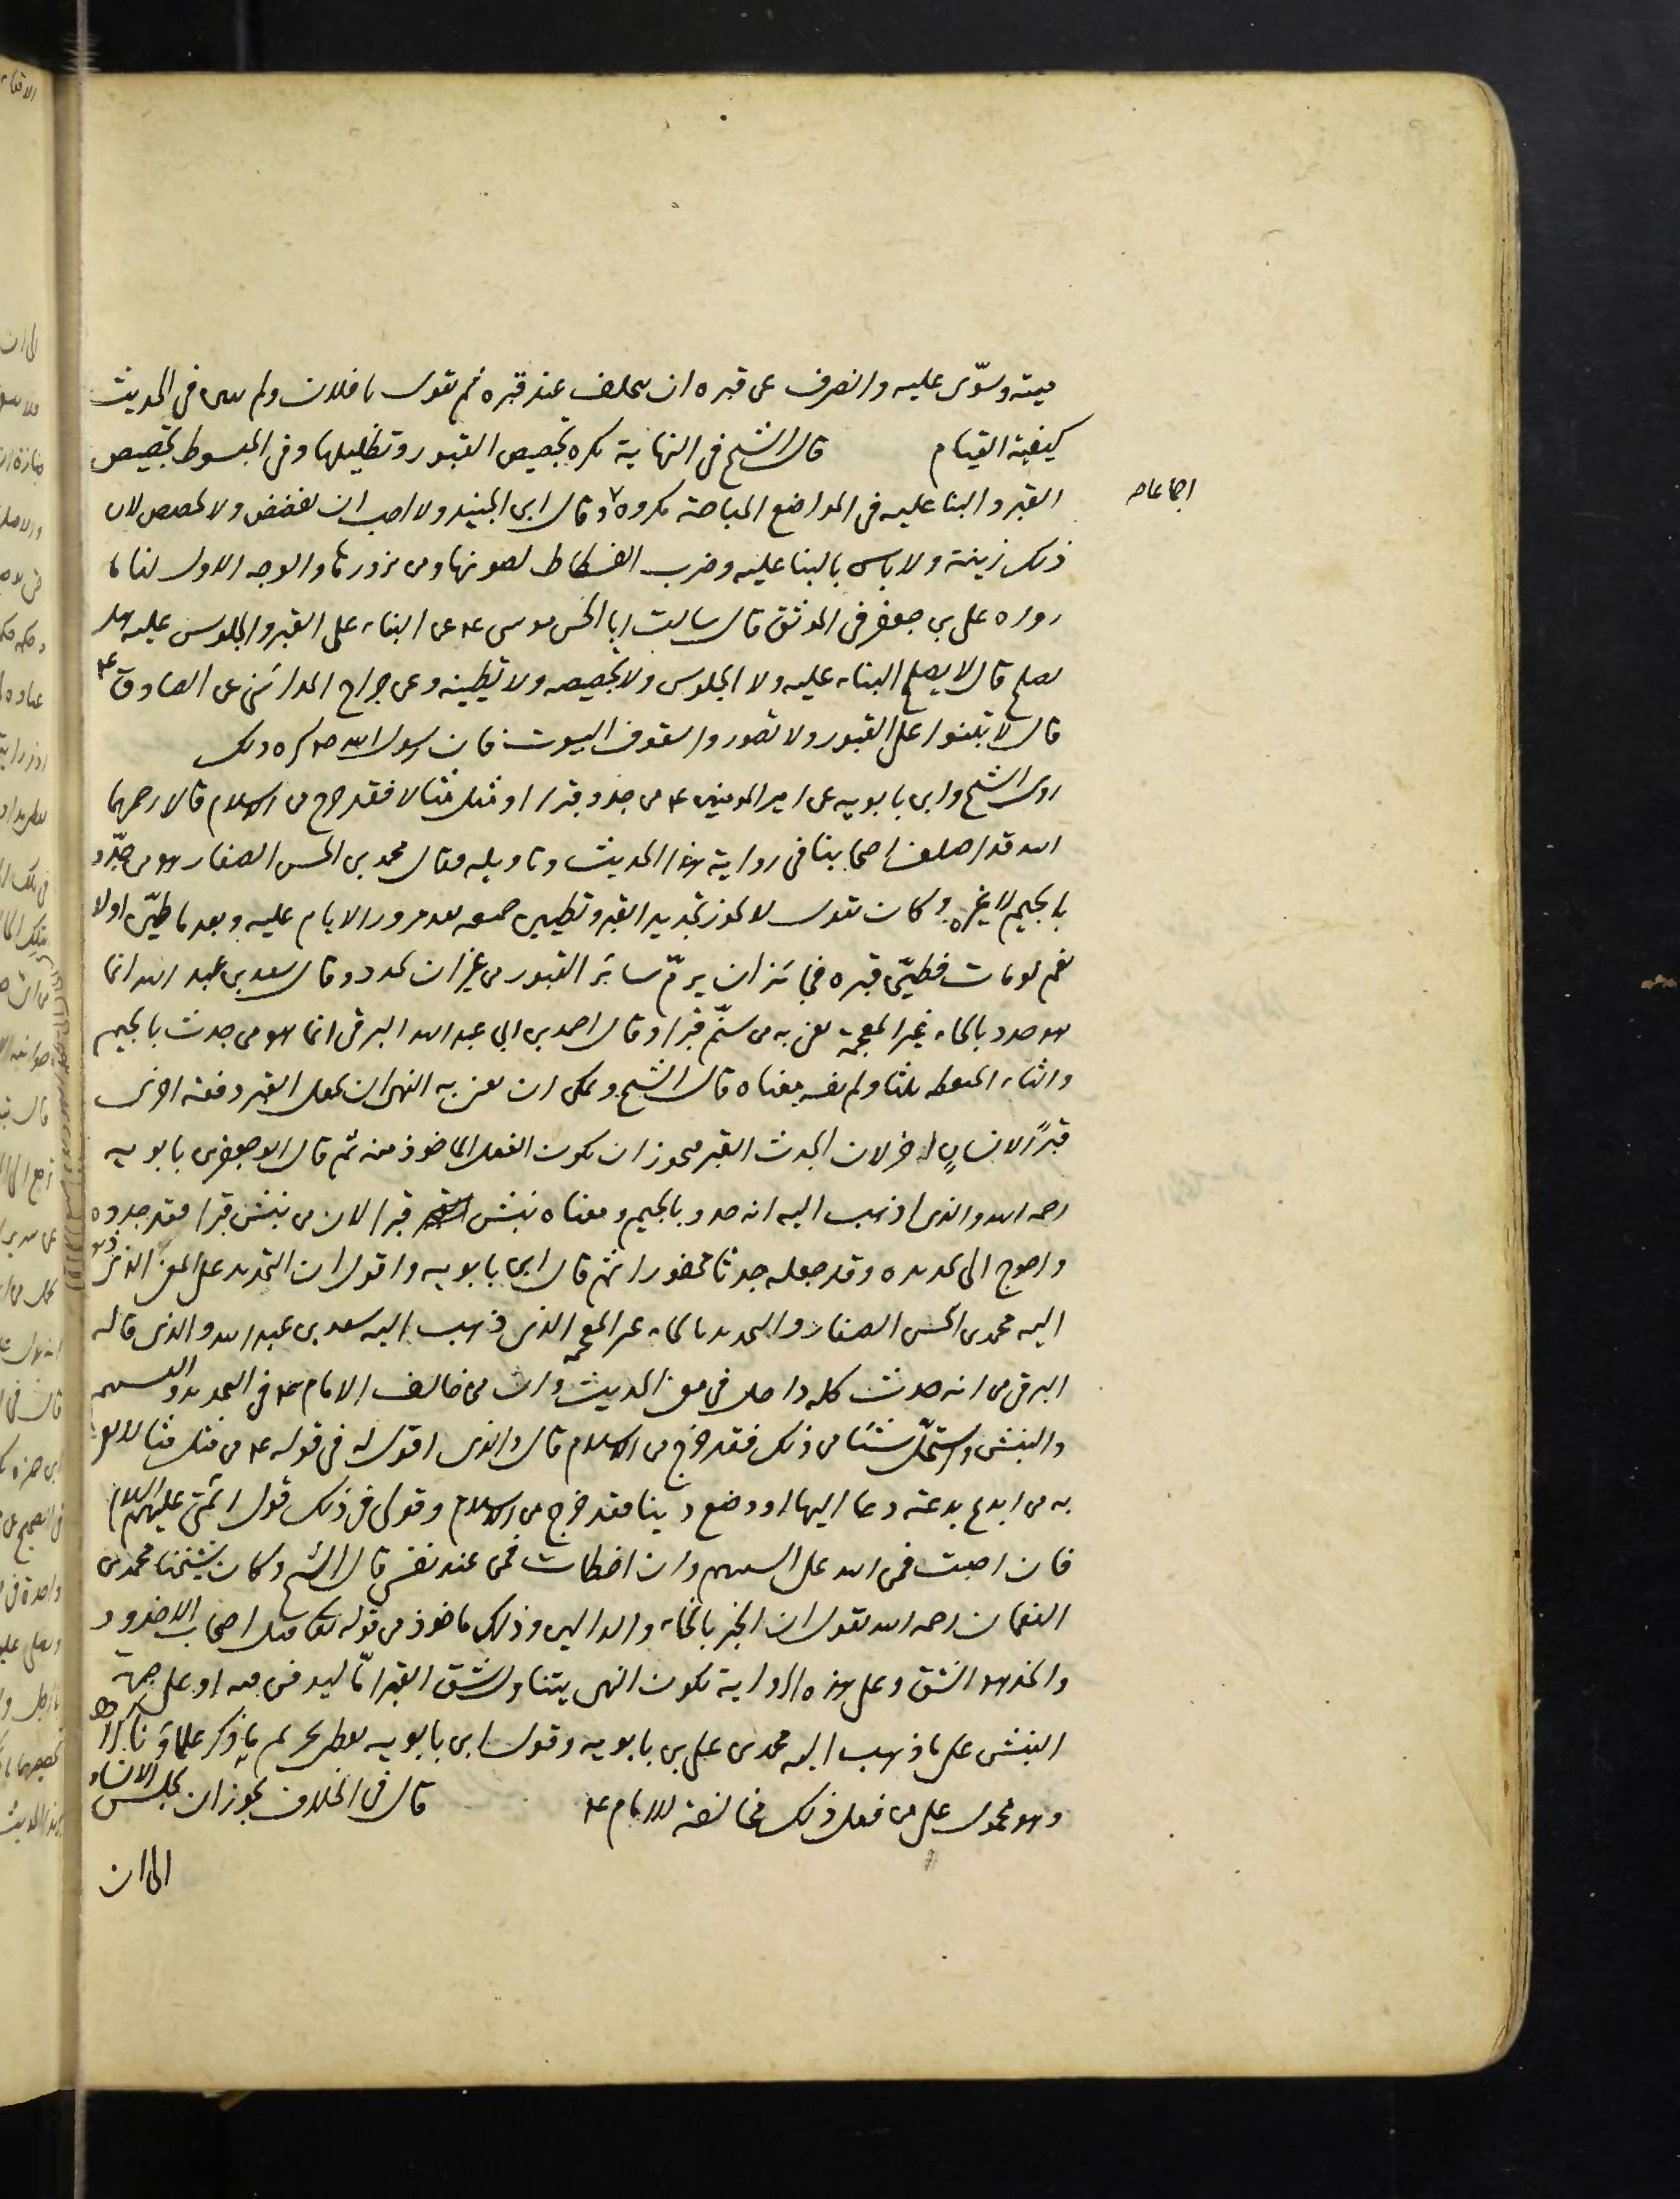 ميته وسوّى عليه وانصرف عن قبره ان يتخلف عند قبره ثم يقول يا فلان ولم يبين في الحديث
كيفية القيام قال الشيخ في النهاية يكره تجصيص القبور وتظليلها وفي المبسوط تجصيص
القبر والبنا عليه في المواضع المباحة مكروه وقال ابن الجنيد ولا احب ان يفضض ولا يجصص لان
اجماعا
ذلك زينة ولا باس بالبنا عليه وضرب الفسطاط لصونها ومن يزورها والوجه الاول لنا ما
رواه على بن جعفر في الموثق قال سالت ابا الحسن موسى ع عن البناء على القبر والجلوس عليه هل
يصلح قال لا يصلح البناء عليه ولا الجلوس ولا تجصيصه ولا تطيينه وعن جراح المدائنى عن الصادق ع
قال لا تبنوا على القبور ولا تصوروا سقوف البيوت فان رسول الله ص كره ذلك
روى الشيخ وابن بابويه عن امير المومنين ع من جدد قبرا او مثل مثالا فقد خرج من الاسلام قالا رحمهما
الله قد اختلف اصحابنا في رواية هذا الحديث وتاويله فقال محمد بن الحسن الصفار هو من جدّد
بالجيم لا غيره وكان يقول لا يجوز تجديد القبر وتطيين جميعه بعد مرور الايام عليه وبعد ما طيّن اولا
نعم لو مات فطيّن قبره فجائز ان يرمّ سائر القبور من غير ان يجدد وقال سعد بن عبد الله انما
هو حدد بالحاء غير المعجمة يعنى به من سنّم قبرا وقال احمد بن ابي عبد الله البرقى انما هو من جدث بالجيم
والثاء المنقطة ثلثا ولم يفسر معناه قال الشيخ ويمكن ان يعنى به النهى ان يجعل القبر دفعة اخرى
قبرًا لانسانٍ اخر لان الجدث القبر فيجوز ان يكون الفعل ماخوذ منه ثم قال ابو جعفر بن بابويه
رحمه الله والذى اذهب اليه انه جدد بالجيم ومعناه نبش قبرا لان من نبش قبرا فقد جدده
واحوج الى تجديده وقد جعله جدثا محفورا ثم قال ابن بابويه واقول ان التجديد على المعنى الذى ذهب
اليه محمد بن الحسن الصفار والتحديد بالحاء غير المعجمة الذى ذهب اليه سعد بن عبد الله والذى قاله
البرقى من انه جدث كله داخل في معنى الحديث وان من خالف الامام ع في التجديد والتسنيم
والنبش واستحلّ شيئا من ذلك فقد خرج من الاسلام قال والذى اقوله في قوله ع من مثل مثالا يعنى
به من ابدع بدعة دعا اليها او وضع دينا فقد خرج من الاسلام وقولى في ذلك قول ائمتى عليهم السلام
فان اصبت فمن الله على السنتهم وان اخطات فمن عند نفسى قال الشيخ وكان شيخنا محمد بن
النعمان رحمه الله يقول ان الخبر بالخاء والدالين وذلك ماخوذ من قوله تعالى قتل اصحاب الاخدود
والخد هو الشق وعلى هذه الرواية يكون النهى يتناول شق القبر امّا ليدفن فيه او على جهة
النبش على ما ذهب اليه محمد بن على بن بابويه وقول ابن بابويه يعطى تحريم ما ذكر علماؤنا
وهو محمول على من فعل ذلك مخالفة للامام ع قال في الخلاف يجوز ان يجلس الانسان
الى ان